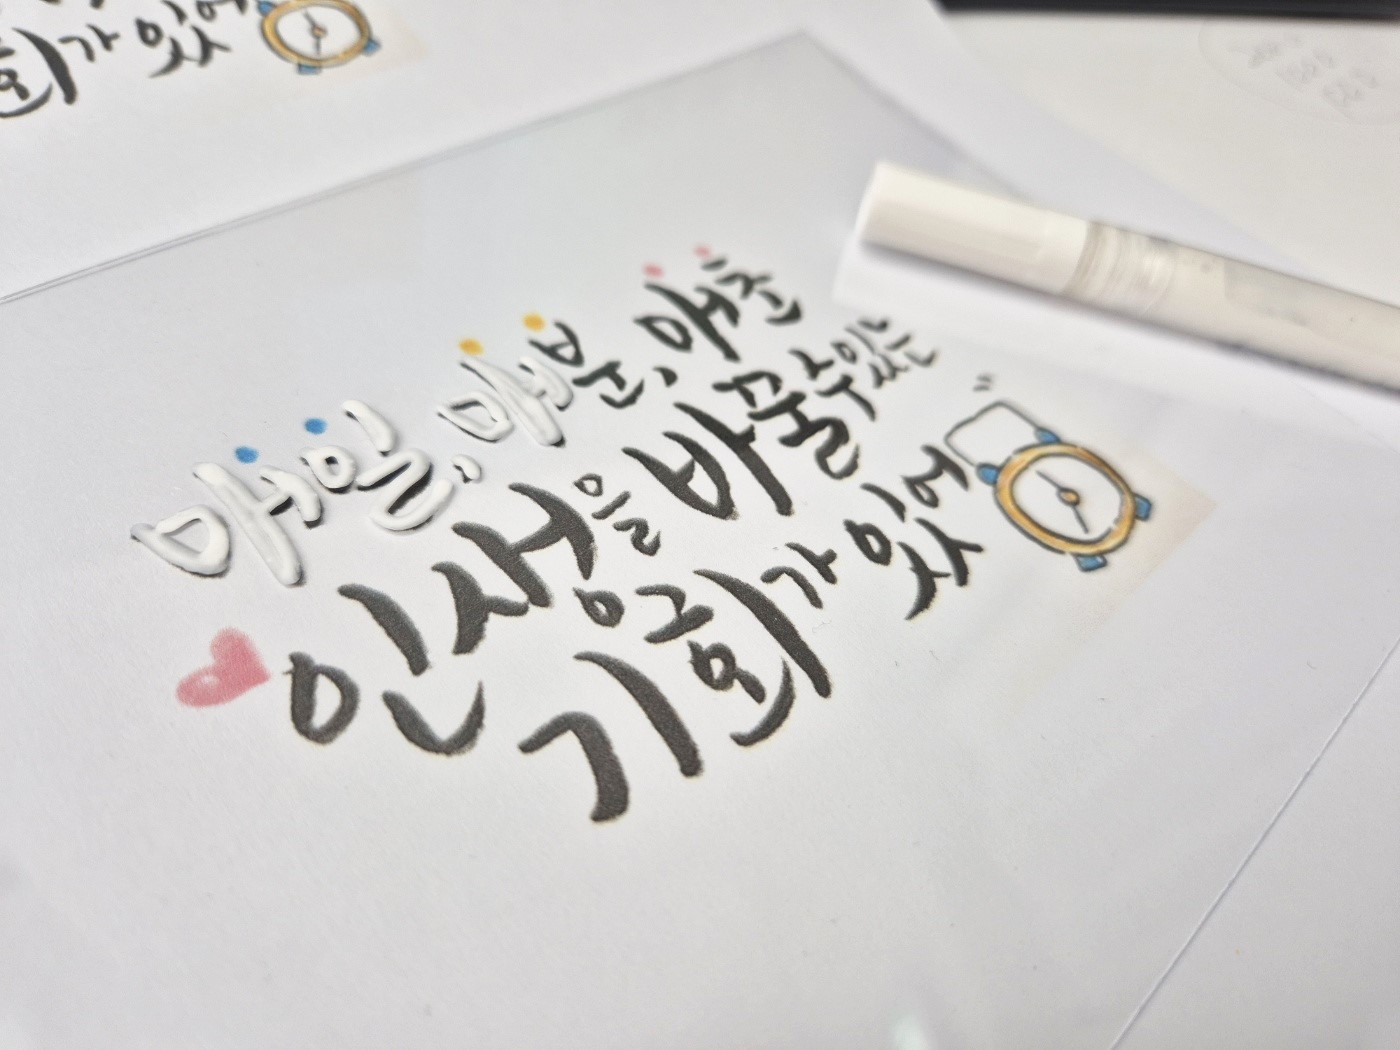 매일, 매분, 매초
인생을 바꿀 수 있는
기회가 있어
회가 있어